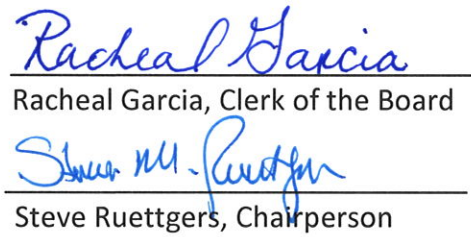 Racheal Garcia
Racheal Garcia, Clerk of the Board
Steve M. Ruettgers
Steve Ruettgers, Chairperson